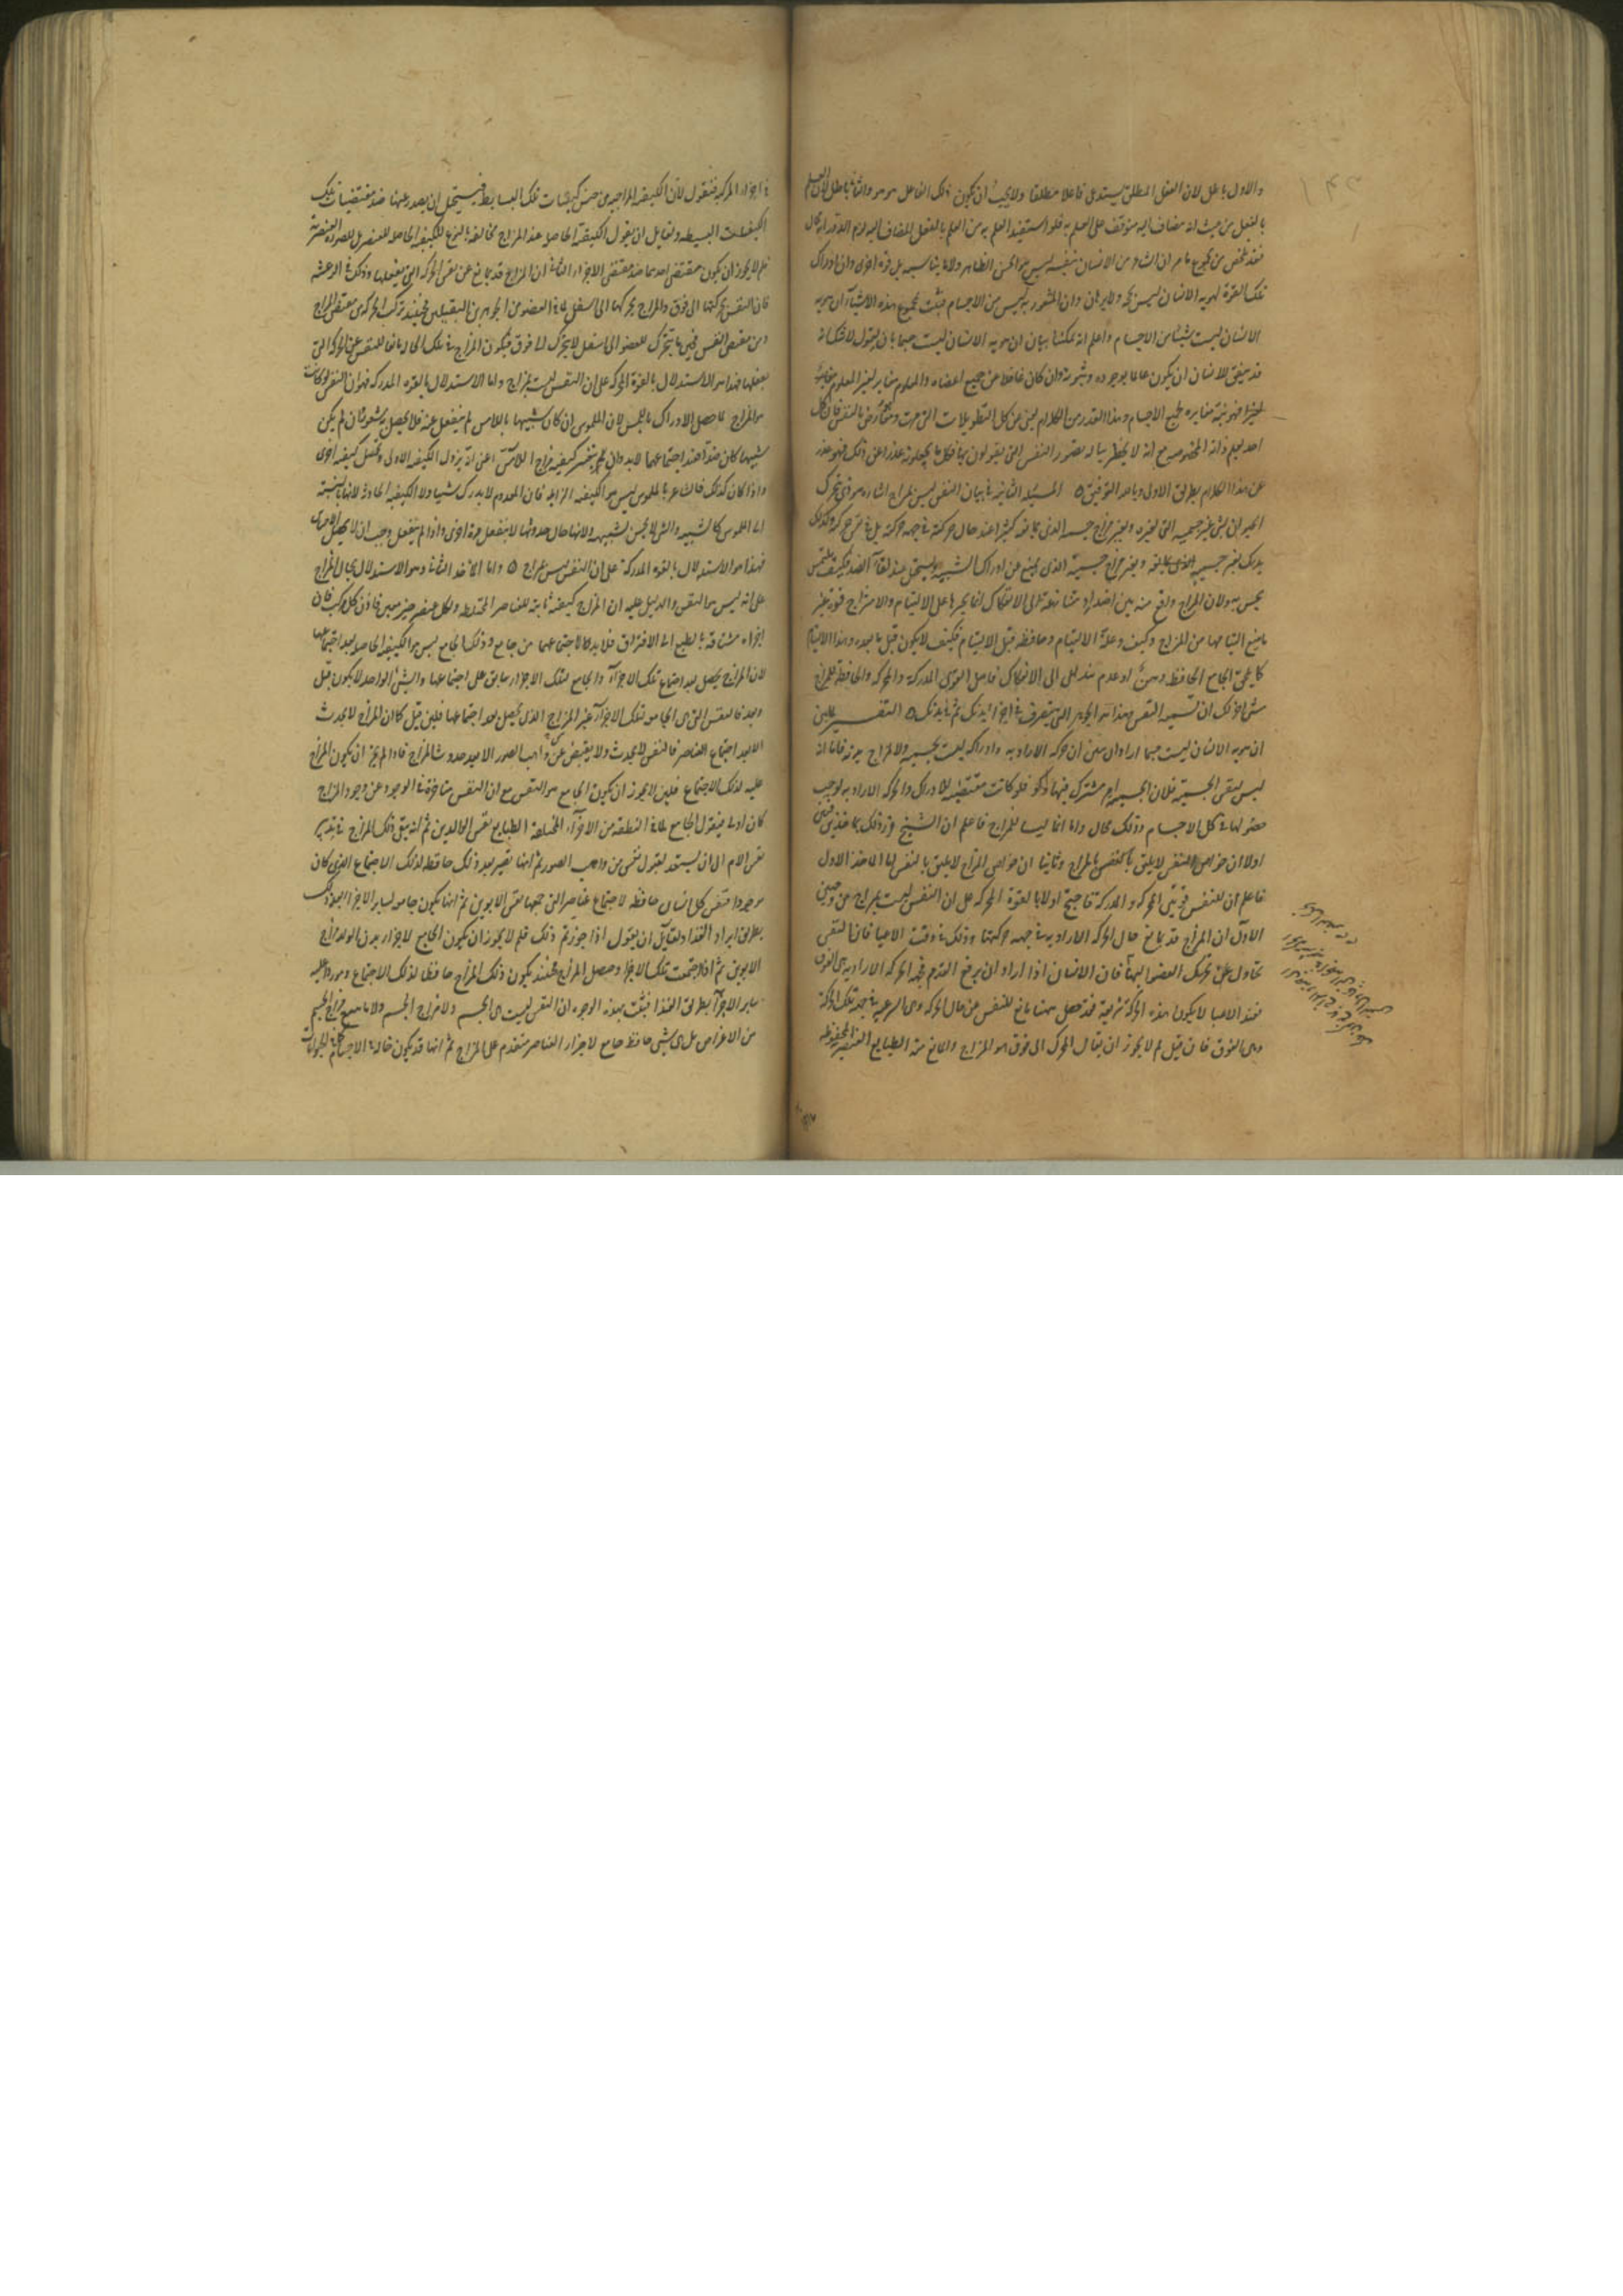 والاول باطل لان الفعل المطلق يستدعى فاعلا مطلقا ولا يجب ان يكون ذلك الفاعل هو هو والثانى باطل لان العلم
بالفعل من حيث انه مضاف اليه متوقف على العلم به فلو استفيد العلم به من العلم بالفعل المضاف اليه لزم الدور وانه محال
فقد تلخص من مجموع ما مر ان الشاعر من الانسان بنفسه ليس هو الحس الظاهر ولا ما يناسبه بل قوة اخرى وان ادراك
تلك القوة لهوية الانسان ليس بحد ولا برهان وان المشعور به ليس من الاجسام فثبت بمجموع هذه الاشياء ان هوية
الانسان ليست شيئا من الاجسام واعلم انه يمكننا بيان ان هوية الانسان ليست جسما بان نقول لا شك انه
قد يتفق للانسان ان يكون عالما بوجوده وثبوته وان كان غافلا عن جميع اعضائه والمعلوم مغاير لغير المعلوم
فهويته مغايرة لجميع الاجسام وهذا القدر من الكلام يغنى عن كل التطويلات التى مرت
احد يعلم ذاته المخصوصة مع انه لا يخطر بباله تصور النفس التى يقولون بها فكل ما يجعلونه عذرا عن ذلك فهو عذر
عن هذا الكلام بطريق الاولى وبالله التوفيق ه المسئلة الثانية فى بيان ان النفس ليس بمزاج اشارة هو ذى تحرك
الحيوان بشئ غير جسميته التى لغيره وبغير مزاج جسمه الذى يمانعه كثيرا عند حال حركته فى جهة حركته بل فى نفس حركته وكذلك
يدرك بغير جسميته وبغير مزاج جسميته الذى يمنع عن ادراك الشبيه ويستحيل عند لقاء الضد فكيف يلمس
به ولان المزاج واقع فيه بين اضداد متنازعة الى الانفكاك انما يجبرها على الالتيام والامتزاج قوة غير
ما يتبع التيامها من المزاج وكيف وعلة الالتيام وحافظه قبل الالتيام فكيف لا يكون قبل ما بعده وهذا الالتيام
كلما يلحق الجامع الحافظ وهن او عدم يتداعى الى الانفكاك فاصل القوى المدركة والمحركة والحافظة للمزاج
شئ اخر لك ان تسميه النفس وهذا هو الجوهر الذى يتصرف فى اجزاء بدنك ثم فى بدنك ه التفسير لما بين
ان هوية الانسان ليست جسما اراد ان يبين ان حركته الارادية وادراكه ليست بجسميته ولا لمزاج بدنه فاما انه
ليس لنفس الجسمية فلان الجسمية امر مشترك فيها فلو كانت مقتضية للادراك والحركة الارادية لوجب
حضولها فى كل الاجسام وذلك محال واما انها ليسا للمزاج فاعلم ان الشيخ قرر ذلك بماخذين فبين
اولا ان خواص النفس لا يليق بالمزاج وثانيا ان خواص المزاج لا يليق بالنفس اما الماخذ الاول
فاعلم ان للنفس قوتين المحركة والمدركة فاحتج اولا بالقوة المحركة على ان النفس ليست بمزاج من وجهين
الاول ان المزاج قد يمانع حال الحركة الارادية فى جهة حركتها وذلك فى وقت الاعيا فان النفس
تحاول تحريك العضو اليها فان الانسان اذا اراد ان يرفع القدم فجهة الحركة الارادية هى الفوق
فعند الاعيا لا يكون هذه الحركة سريعة فقد حصل ههنا مانع للنفس عن حال الحركة وهى السرعة فى جهة تلك الحركة
وهى الفوق فان قيل لم لا يجوز ان يقال المحرك الى فوق هو المزاج والمانع منه الطبايع العنصرية المحفوظة
فى اجزاء المركب فنقول لان الكيفية المزاجية من جنس كيفيات تلك البسايط فيستحيل ان يصدر عنها ضد مقتضيات تلك
الكيفيات البسيطة ولقايل ان يقول الكيفية الحاصلة عند المزاج مخالفة بالنوع للكيفية الحاصلة للعنصر بل للصورة العنصرية
فلم لا يجوز ان يكون مقتضى احديهما ضد مقتضى الاخرى الثانى ان المزاج قد يمانع عن نفس الحركة التى يفعلها وذلك فى الرعشة
فان النفس يحركها الى فوق والمزاج يحركها الى اسفل لما فى العضو من الجوهرين الثقيلين فحينئذ تركب الحركة من مقتضى المزاج
ومن مقتضى النفس فحين ما يتحرك العضو الى اسفل لا يتحرك الى فوق فيكون المزاج فى تلك الحال مانعا للنفس عن الحركة التى
يفعلها فهذا هو الاستدلال بالقوة المحركة على ان النفس ليست بمزاج واما الاستدلال بالقوة المدركة فهو ان النفس لو كانت
هو المزاج لما حصل الادراك باللمس لان الملموس ان كان شبيها باللامس لم ينفعل عنه فلا يحصل شعور به وان لم يكن
شبيها كان ضدا فعند اجتماعهما لا بد وان يتغير كيفية مزاج اللامس اعنى انه يزول الكيفية الاولى وتحصل كيفية اخرى
واذا كان كذلك فالشاعر بالملموس ليس هو الكيفية الزايلة فان المعدوم لا يدرك شيئا ولا الكيفية الحادثة لانها بالنسبة
الى الملموس كالشبيه والشئ لا يحس بشبيهه ولانها حال حدوثها لا ينفعل مرة اخرى واذا لم ينفعل وجب ان لا يحصل الادراك
فهذا هو الاستدلال بالقوة المدركة على ان النفس ليس بمزاج ه واما الماخذ الثانى وهو الاستدلال بحال المزاج
على انه ليس هو النفس والدليل عليه ان المزاج كيفية ثابتة للعناصر المختلطة ولكل عنصر حيز معين فاذن كل مركب فان
اجزاءه مشتاقة بالطبع الى الافتراق فلا بد لاجتماعهما من جامع وذلك الجامع ليس هو الكيفية الحاصلة بعد اجتماعها
لان المزاج يحصل بعد اجتماع تلك الاجزاء والجامع لتلك الاجزاء سابق على اجتماعها والشئ الواحد لا يكون قبل
وبعد فالنفس التى هى الجامعة لتلك الاجزاء غير المزاج الذى يحصل بعد اجتماعها فلين قيل كما ان المزاج لا يحدث
الا بعد اجتماع العناصر فالنفس لا يحدث ولا يفيض عن واهب الصور الا بعد حدوث المزاج فاذا لم يجز ان يكون المزاج
علة لذلك الاجتماع فلين لا يجوز ان يكون الجامع هو النفس مع ان النفس متاخرة فى الوجود عن وجود المزاج
كان اولى فنقول الجامع لما فى النطفة من الاجزاء المختلفة الطبايع نفس الوالدين ثم انه يبقى ذلك المزاج فى تدبير
نفس الام الى ان يستعد لقبول نفس من واهب الصور ثم انها تصير بعد ذلك حافظة لذلك الاجتماع الذى كان
موجودا فنفس كل انسان حافظة لاجتماع عناصر التى جمعها نفس الابوين ثم انها يكون جامعة لساير الاجزاء بعد ذلك
بطريق ايراد الغذا ولقايل ان يقول اذا جوزتم ذلك فلم لا يجوز ان يكون الجامع لاجزاء بدن الولد مزاج
الابوين ثم اذا اجتمعت تلك الاجزاء وحصل المزاج فحينئذ يكون ذلك المزاج حافظا لذلك الاجتماع وموردا عليه
ساير الاجزاء بطريق الغذا فثبت بهذه الوجوه ان النفس ليست هى الجسم ولا مزاج الجسم ولا ما يتبع مزاج الجسم
من الاعراض بل هى شئ حافظ جامع لاجزاء العناصر متقدم على المزاج ثم انها قد يكون حالة فى الاجسام